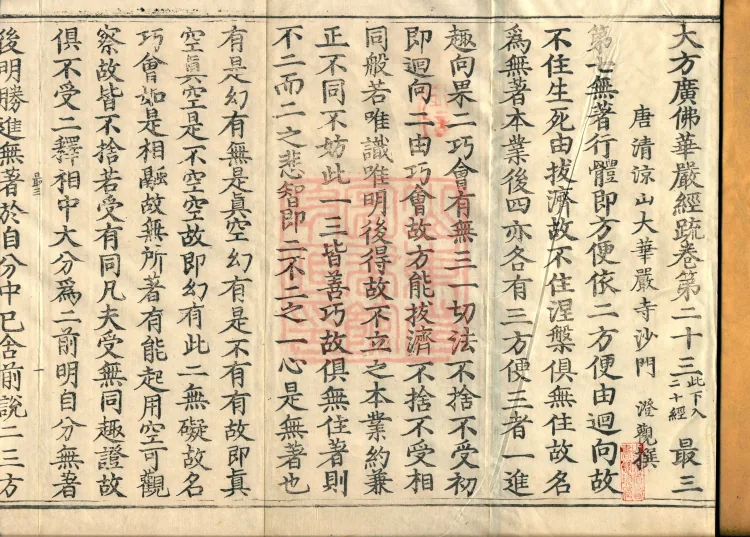 大方廣佛華嚴經䟽卷第二十三此下入二十經 最三
唐清涼山大華嚴寺沙門 澄觀撰
第七無著行體即方便依二方便由迴向故
不住生死由拔濟故不住涅槃俱無住故名
爲無著本業後四亦各有三方便三者一進
趣向果二巧會有無三一切法不捨不受初
即迴向二由巧會故方能拔濟不捨不受相
同般若唯識唯明後得故不立之本業約兼
正不同不妨此一三皆善巧故俱無住著則
不二而二之悲智即二不二之一心是無著也
有是幻有無是真空幻有是不有有故即真
空真空是不空空故即幻有此二無礙故名
巧會如是相融故無所著有能起用空可觀
察故皆不捨若受有同凡夫受無同趣證故
俱不受二釋相中大分爲二前明自分無著
最三
後明勝進無著於自分中已含前說二三方